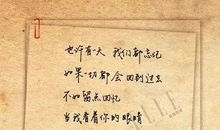 也许有一天 我们都忘记
如果一切都会回到过去
不如留点回忆
当我看着你的眼睛